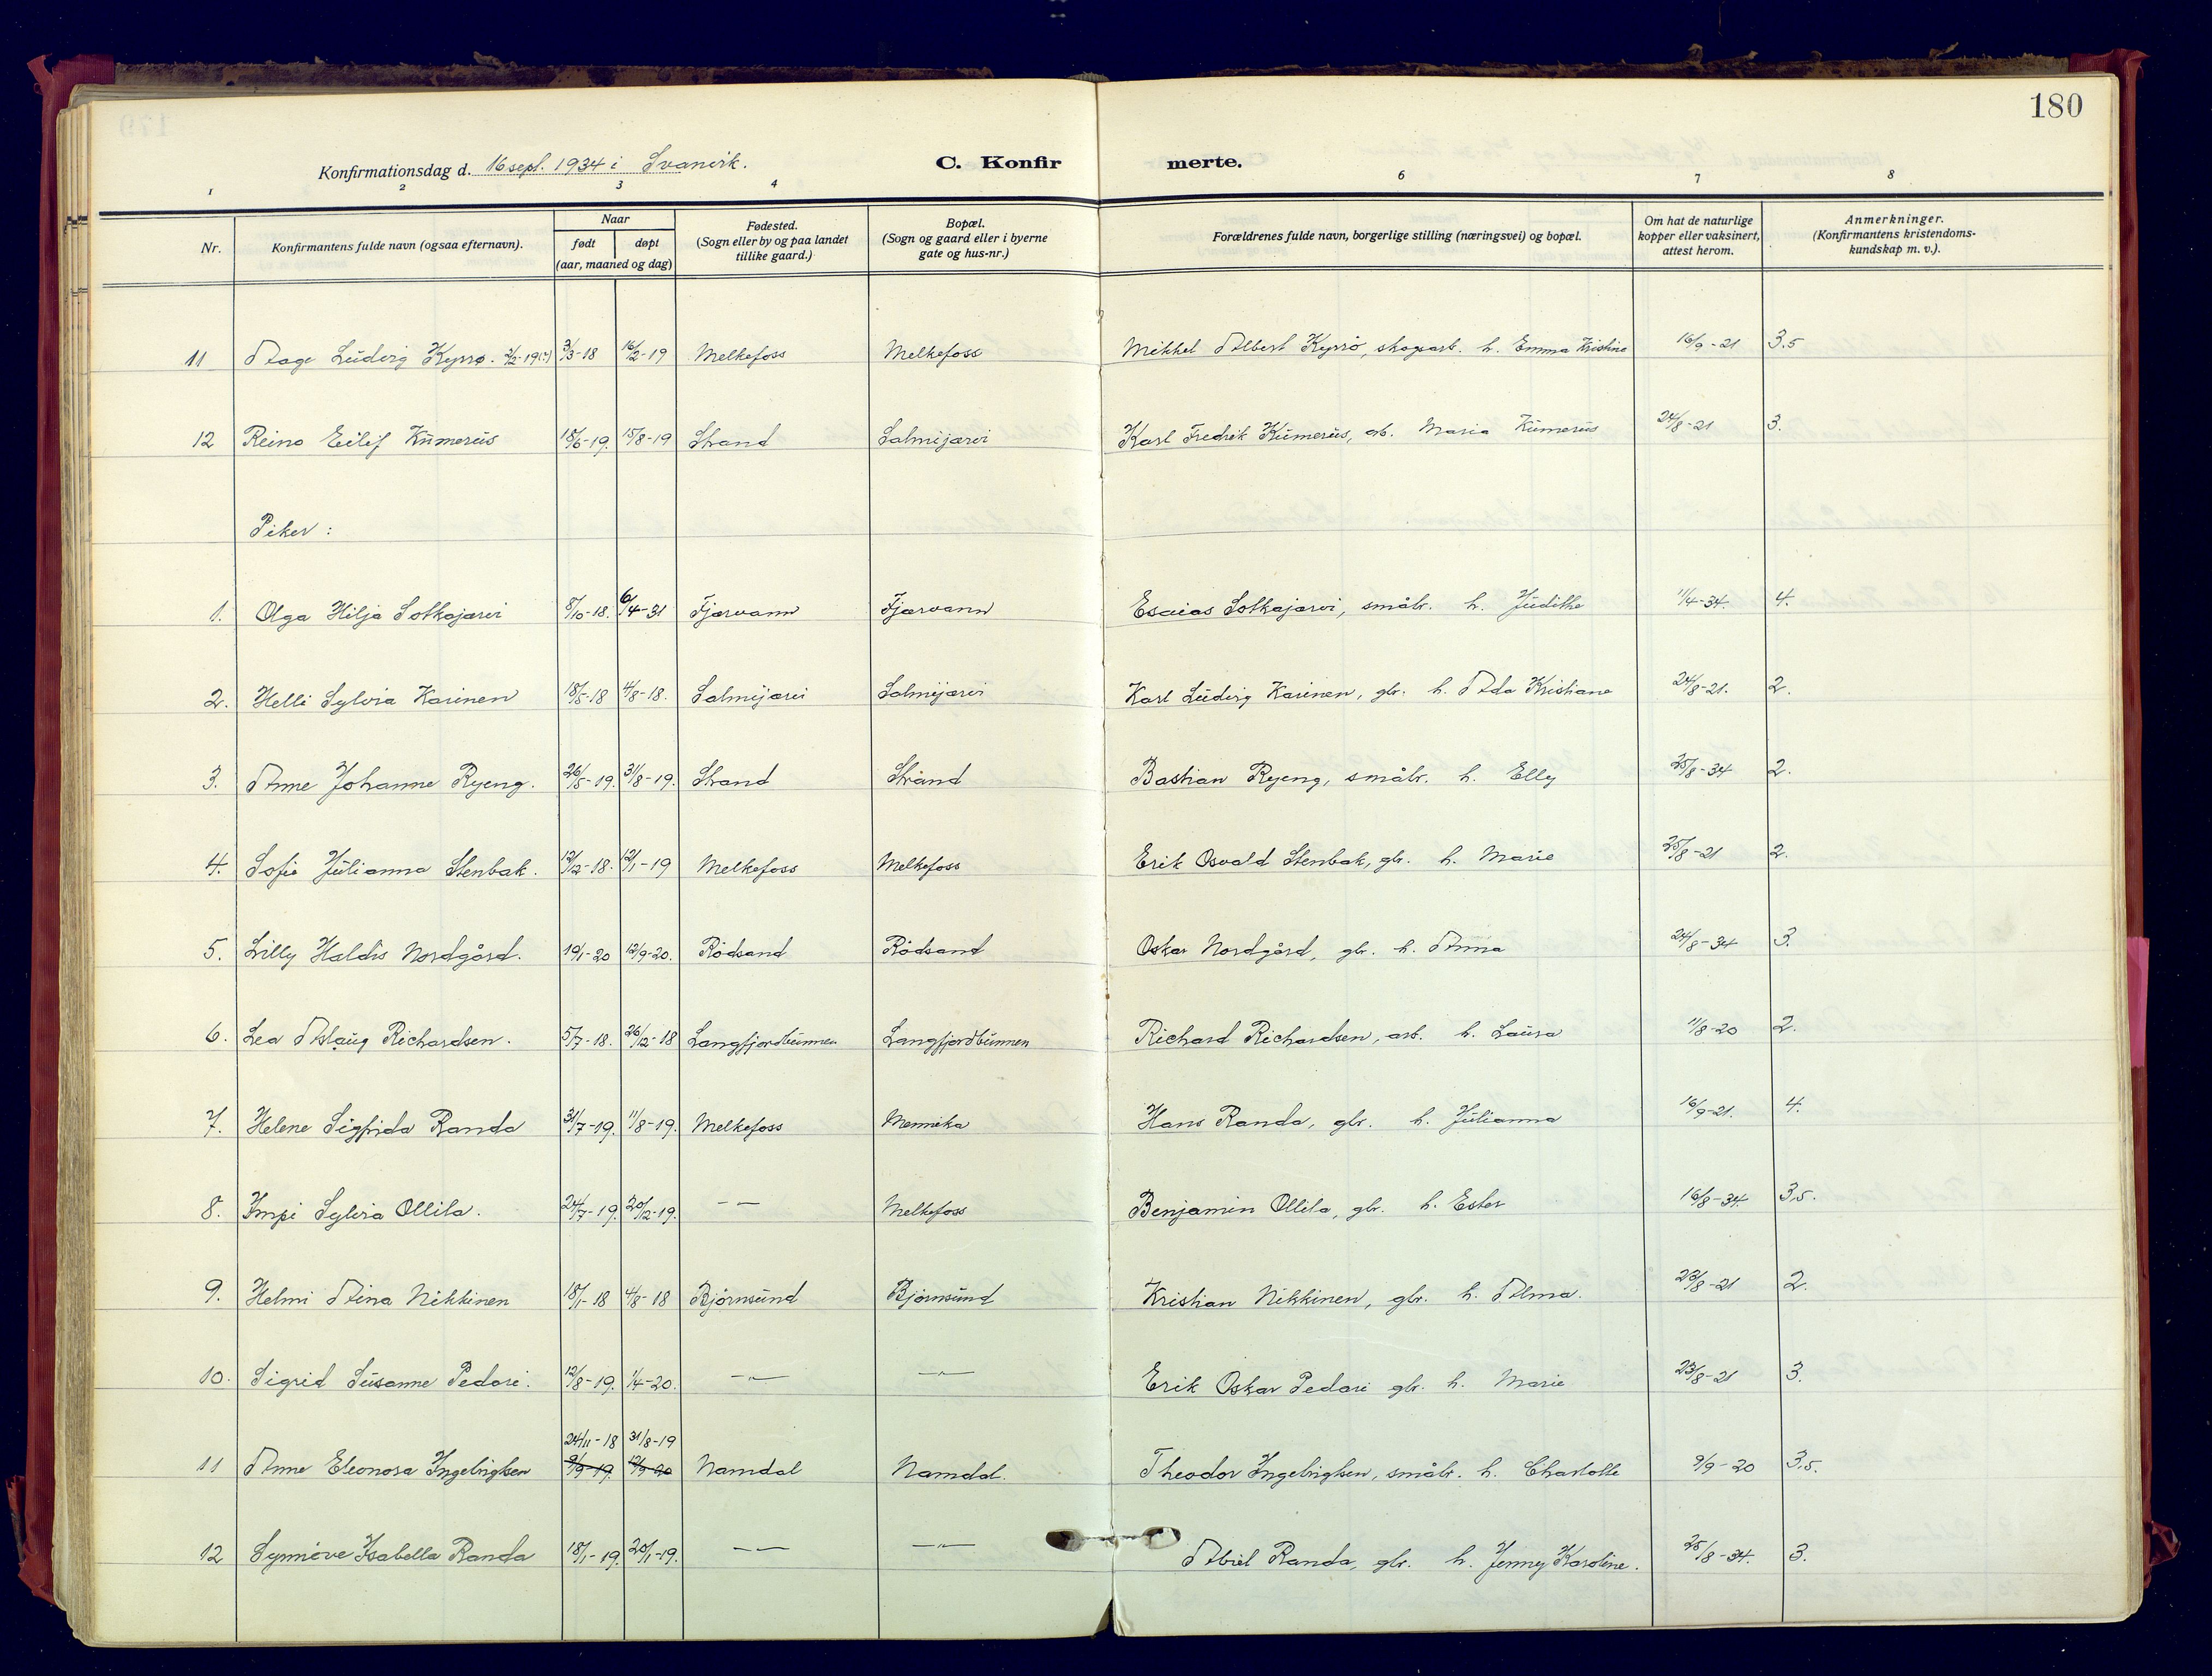 180
Konfirmationsdag d. 16 sept. 1934 i Svanvik. C. Konfirmerte.
1 2 3 4 6 7 8
Nr. Konfirmantens fulde navn (ogsaa efternavn). Naar født døpt (aar, maaned og dag) Fødested. (Sogn eller by og paa landet tillike gaard.) Bopæl. (Sogn og gaard eller i byerne gate og hus-nr.) Forældrenes fulde navn, borgerlige stilling (næringsvei) og bopæl. Om hat de naturlige kopper eller vaksinert, attest herom. Anmerkninger. (Konfirmantens kristendoms-kundskap m. v.).
11 Aage Ludvig Kyrrø. 3/2-19(?) 3/3-18 16/2-19 Melkefoss Melkefoss Mikkel Albert Kyrrö, skogsarb. h. Emma Kristine 16/9-21 3.5
12 Reino Eilif Kumerus 18/6-19. 15/8-19 Strand Salmijarvi Karl Fredrik Kumerus, arb. Maria Kumerus 24/8-21 3.
Piker:
1. Olga Hilja Sotkajarvi 8/10-18. 6/4-31 Fjærvann Fjærvann Esaias Sotkajarvi, småbr. h. Judithe 11/4-34. 4.
2. Helli Sylvia Karinen 18/5-18 4/8-18. Salmijarvi Salmijarvi Karl Ludvig Karinen, gbr. h. Ada Kristiane 24/8-21. 2.
3. Anne Johanne Ryeng. 26/5-19. 31/8-19. Strand Strand Bastian Ryeng, småbr. h. Elly 25/8-34 2.
4. Sofie Julianna Stenbak. 12/12-18. 12/1-19 Melkefoss Melkefoss Erik Osvald Stenbak, gbr. h. Marie 25/8-21 2.
5. Lilly Haldis Nordgård. 19/1-20 12/9-20. Rödsand Rödsand Oskar Nordgård, gbr. h. Anna 24/8-34 3.
6. Lea Aslaug Richardsen. 5/7-18. 26/12-18 Langfjordbunnen Langfjordbunnen Richard Richardsen, arb. h. Laura 11/8-20 2.
7. Helene Sigfrida Randa 31/7-19. 11/8-19. Melkefoss Mennika Hans Randa, gbr. h. Julianna 16/9-21. 4.
8. Impi Sylvia Ollila. 24/7-19. 20/12-19. — — Melkefoss Benjamin Ollila, gbr. h. Ester 16/8-34. 3,5.
9. Helmi Aina Nikkinen 18/1-18 4/8-18 Björnsund Björnsund Kristian Nikkinen, gbr. h. Alma. 23/8-21 2.
10. Sigrid Susanne Pedari. 12/8-19. 1/4-20. —"— —"— Erik Oskar Pedari gbr. h. Marie 23/8-21 3.
24/11-18 31/8-19
11 Anne Eleonora Ingebrigtsen 9/9-19. 12/9-20 Namdal Namdal. Theodor Ingebrigtsen, småbr. h. Charlotte 9/9-20 3,5.
12 Synnöve Isabella Randa 18/1-19. 20/1-19. — — —"— Abiel Randa, gbr. h. Jenny Karoline. 25/8-34. 3.